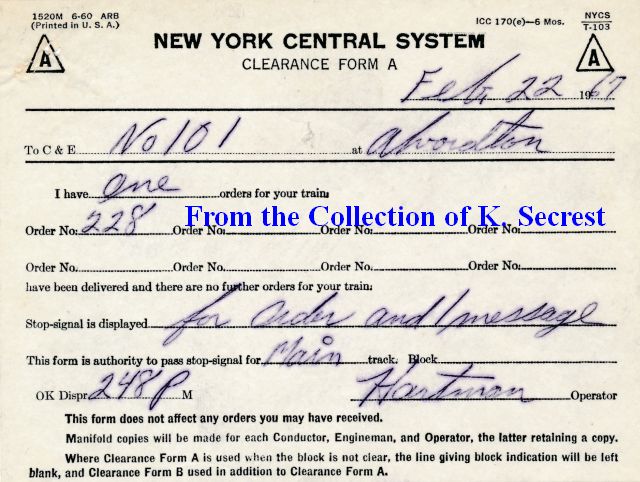 1520M 6-60 ARB ICC 170(e)—6 Mos. NYCS
(Printed in U. S. A.) T-103
A NEW YORK CENTRAL SYSTEM A
CLEARANCE FORM A
Feb. 22 1967
To C & E No 101 at Alvordton
I have one orders for your train.
Order No. 228 Order No. Order No. Order No.
From the Collection of K. Secrest
Order No. Order No. Order No. Order No.
have been delivered and there are no further orders for your train.
Stop-signal is displayed for order and 1 message
This form is authority to pass stop-signal for Main track. Block
OK Dispr. 248 P M Hartman Operator
This form does not affect any orders you may have received.
Manifold copies will be made for each Conductor, Engineman, and Operator, the latter retaining a copy.
Where Clearance Form A is used when the block is not clear, the line giving block indication will be left
blank, and Clearance Form B used in addition to Clearance Form A.